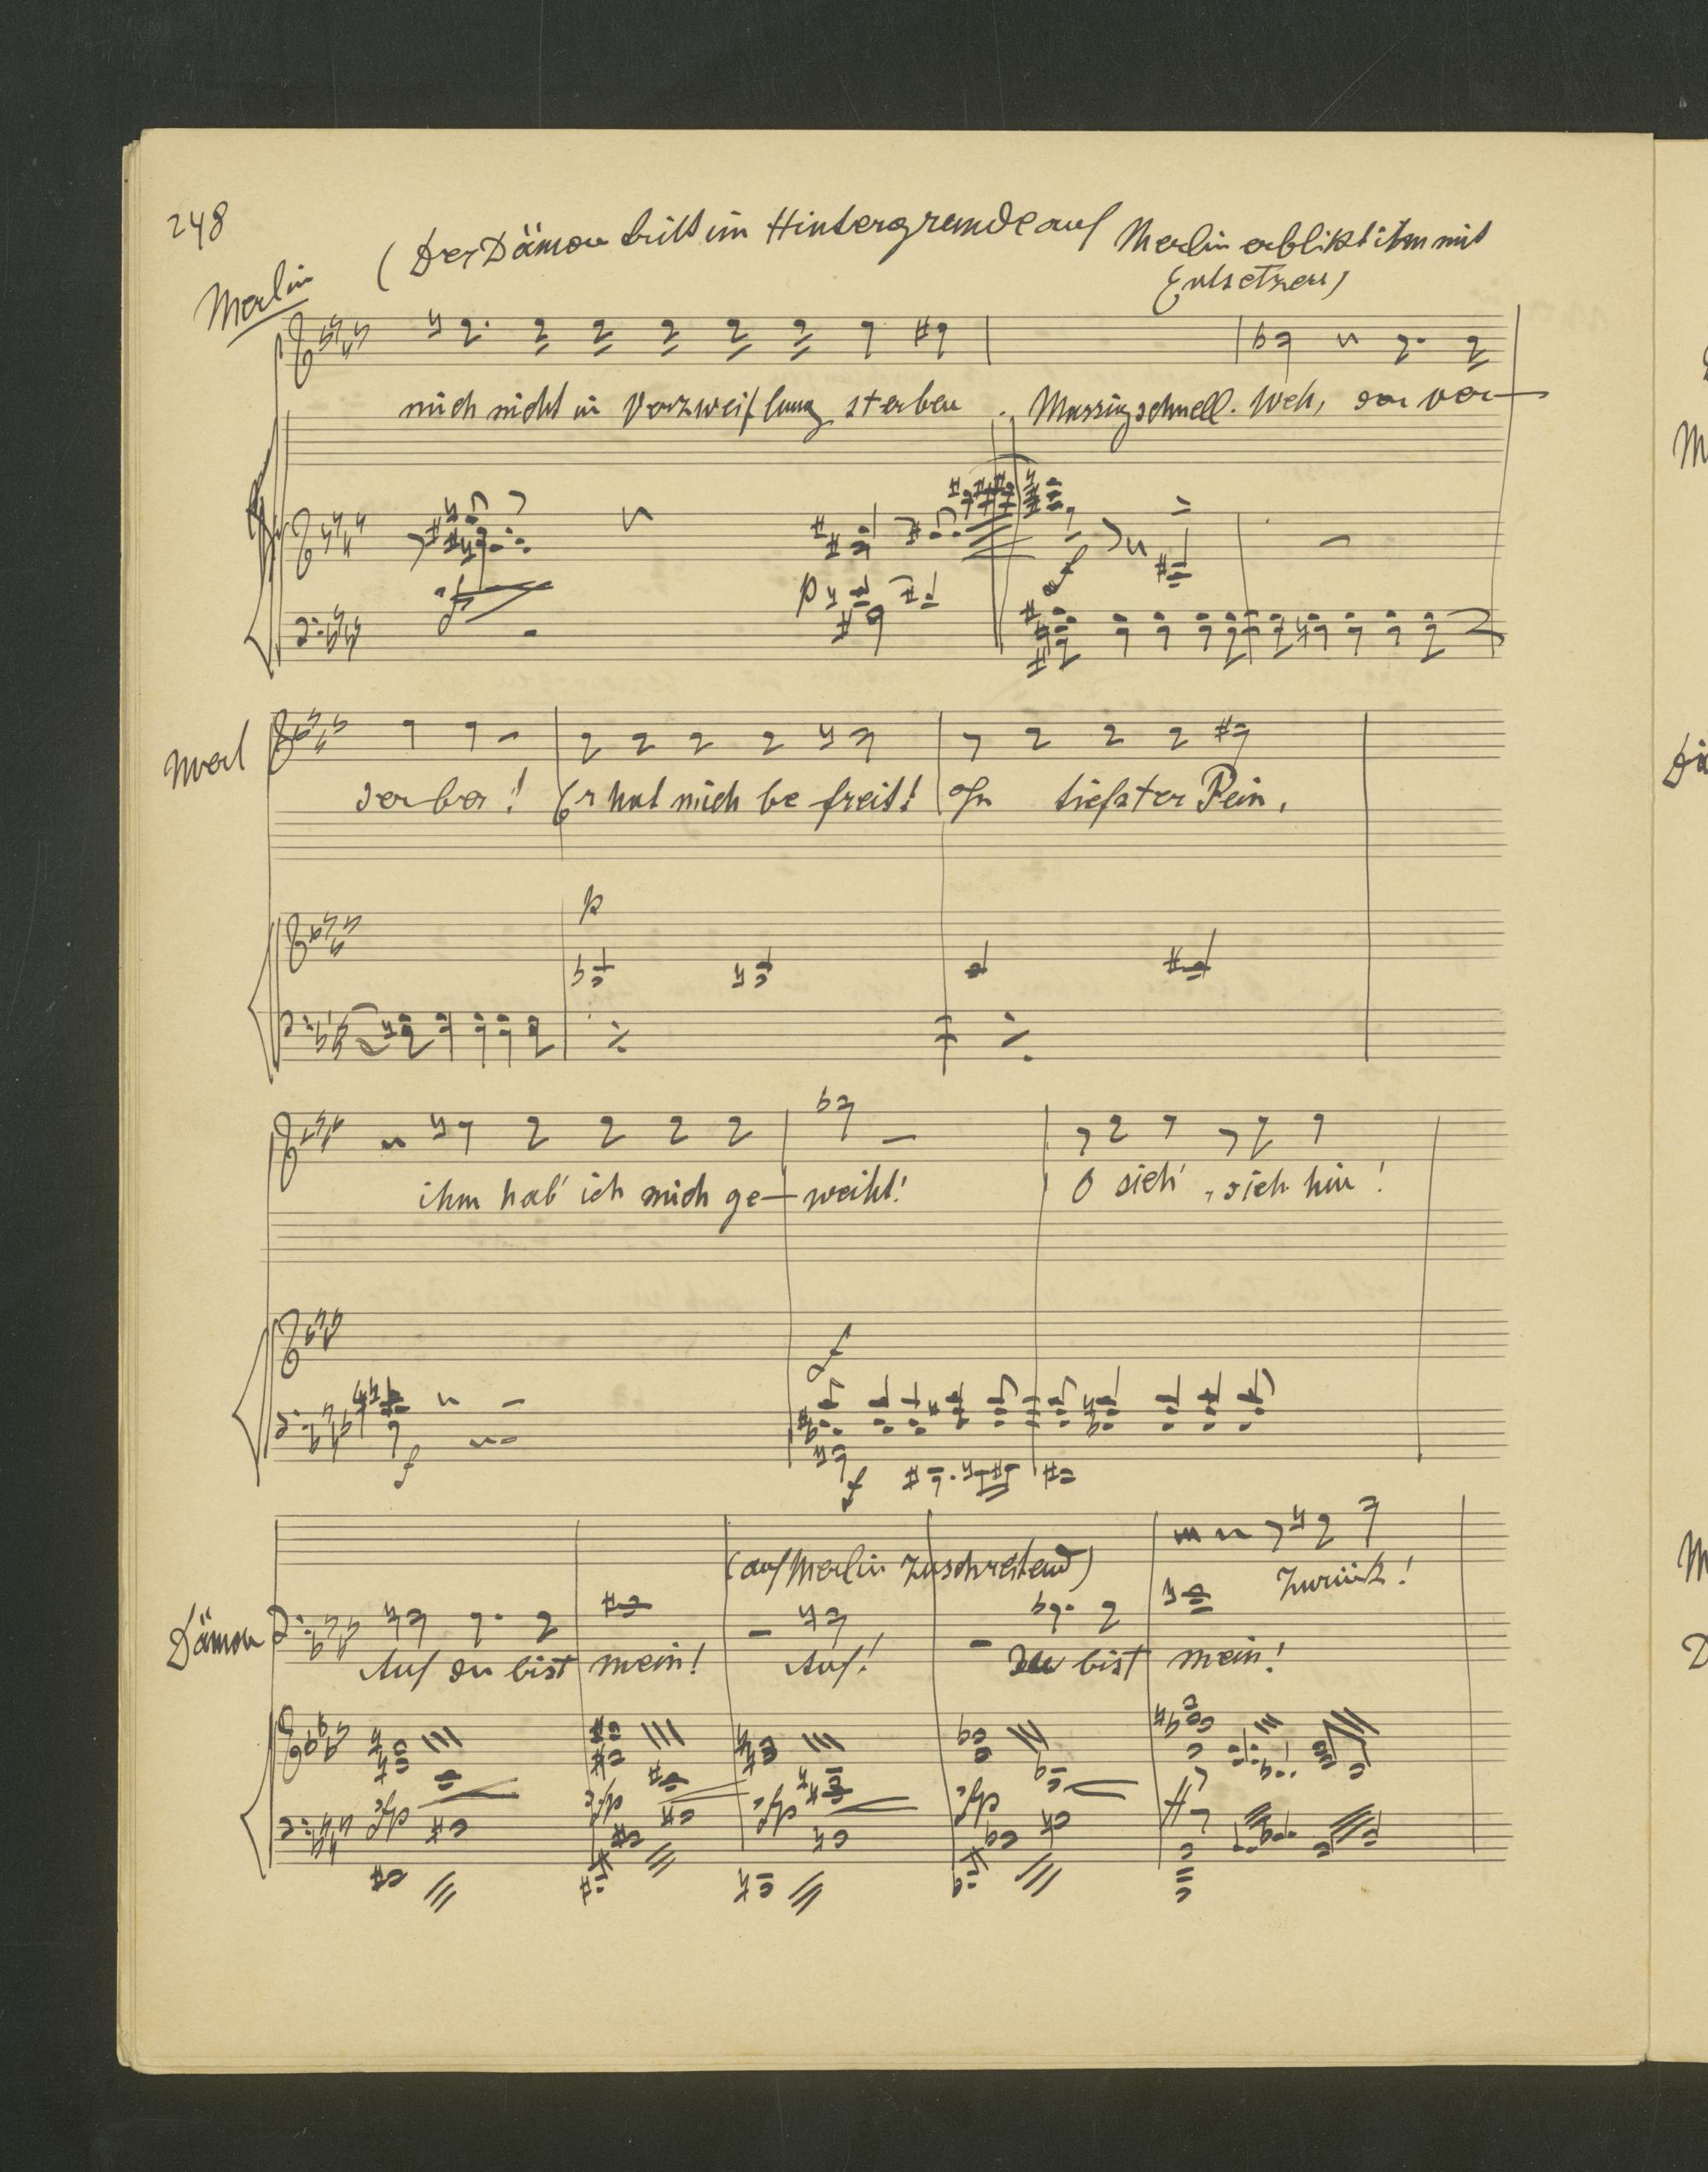 248
(Der Dämon tritt im Hintergrunde auf Merlin erblikt ihm mit
Entsetzen)
Merlin
mich nicht in Verzweiflung sterben. Massig schnell. Weh, der ver-
p
f
Merl
derber! Er hat mich befreit! In tiefster Pein,
p
ihm hab' ich mich ge-weiht! O sieh', sieh hin!
f
f
f
(auf Merlin zuschreitend)
Zurück!
Dämon
Auf du bist mein! Auf! Du bist mein!
sfp sfp sfp sfp ff